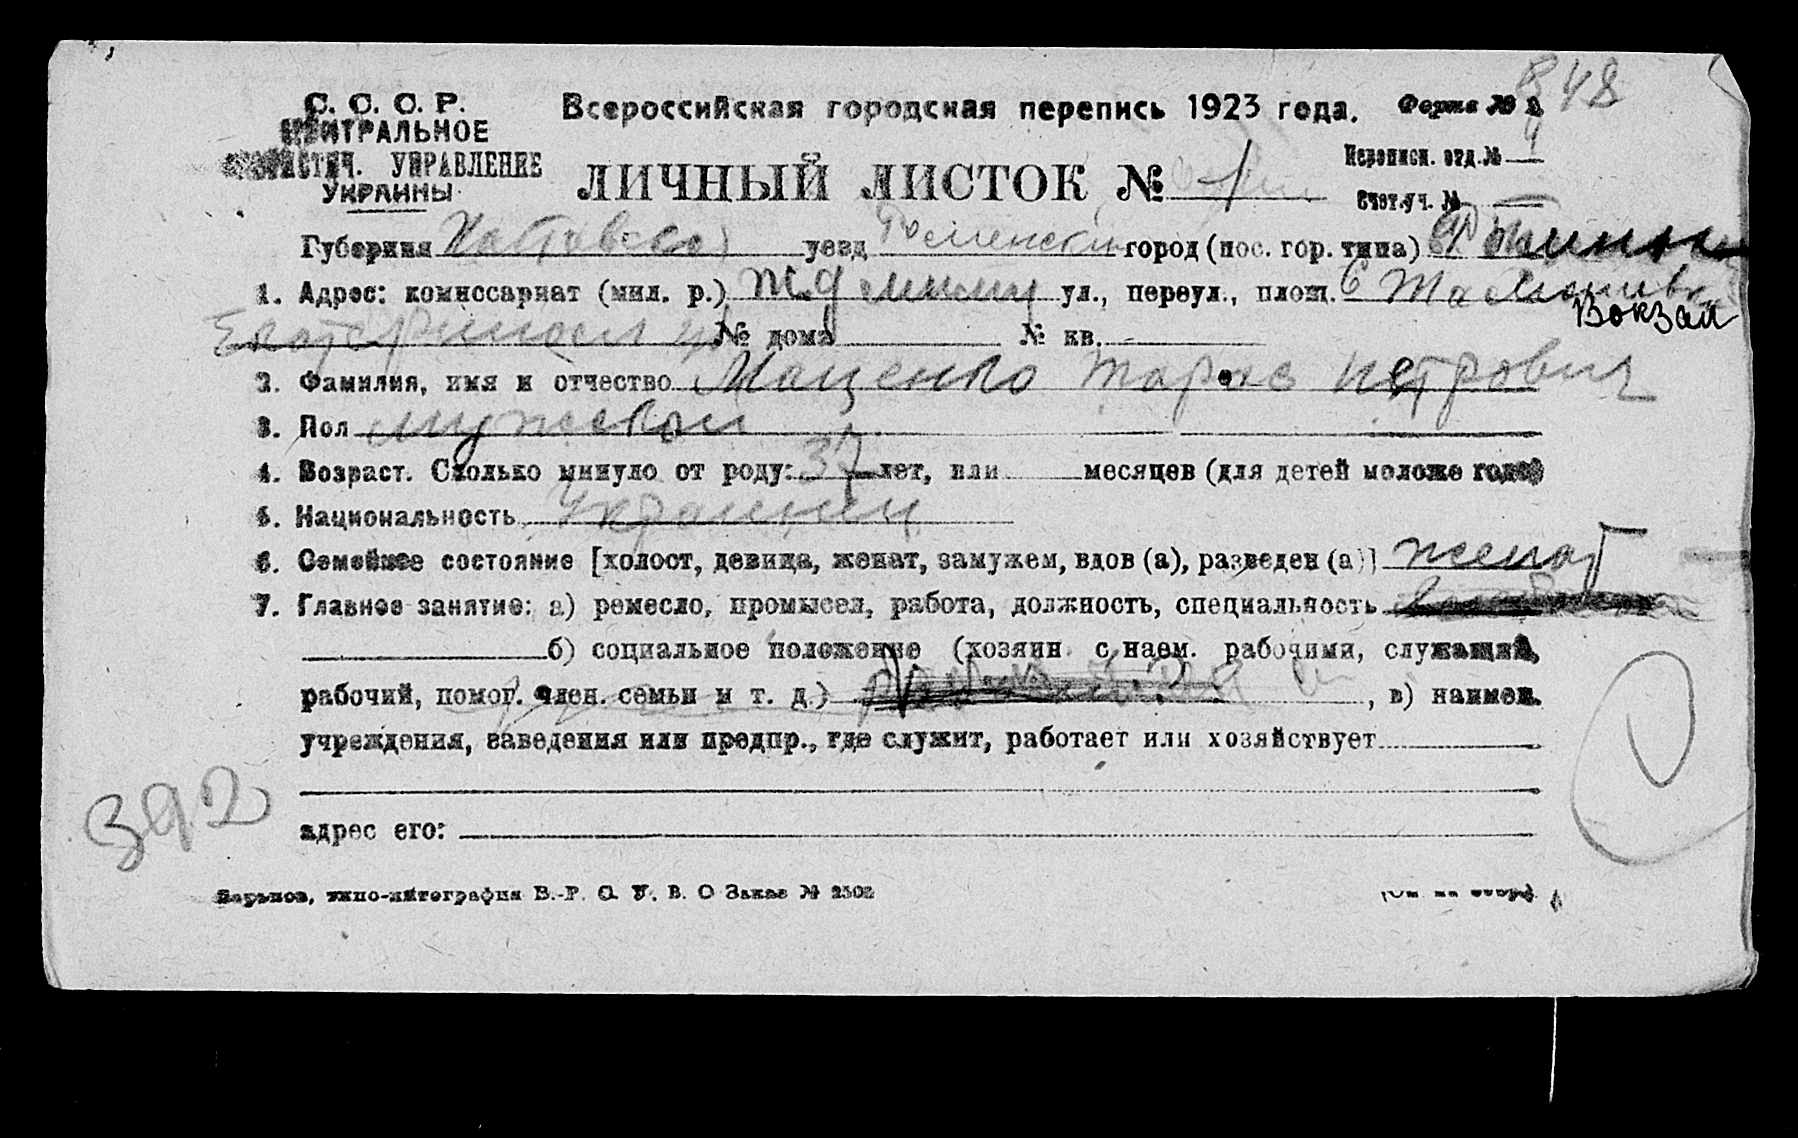 848
С. С. С. Р.
ЦЕНТРАЛЬНОЕ
СТАТИСТИЧ. УПРАВЛЕНИЕ
УКРАИНЫ
Всероссийская городская перепись 1923 года. Форма №
ЛИЧНЫЙ ЛИСТОК № 1
Переписн. отд. № 4
Счет. уч. №
Губерния уезд Роменский город (пос. гор. типа)
1. Адрес: комиссариат (мил. р.) ж.д. ул., переул., площ.
Вокзал
№ дома № кв.
2. Фамилия, имя и отчество Маценко Тарас Петрович
3. Пол мужской
4. Возраст. Сколько минуло от роду: 37 лет, или месяцев (для детей моложе года)
5. Национальность Украинец
6. Семейное состояние [холост, девица, женат, замужем, вдов (а), разведен (а)] женат
7. Главное занятие: а) ремесло, промысел, работа, должность, специальность
б) социальное положение (хозяин с наем. рабочими, служащий,
рабочий, помог. член. семьи и т. д.) , в) наимен.
учреждения, заведения или предпр., где служит, работает или хозяйствует
адрес его:
392
Харьков, типо-литография В.-Р. О. У. В. О Заказ № 2502